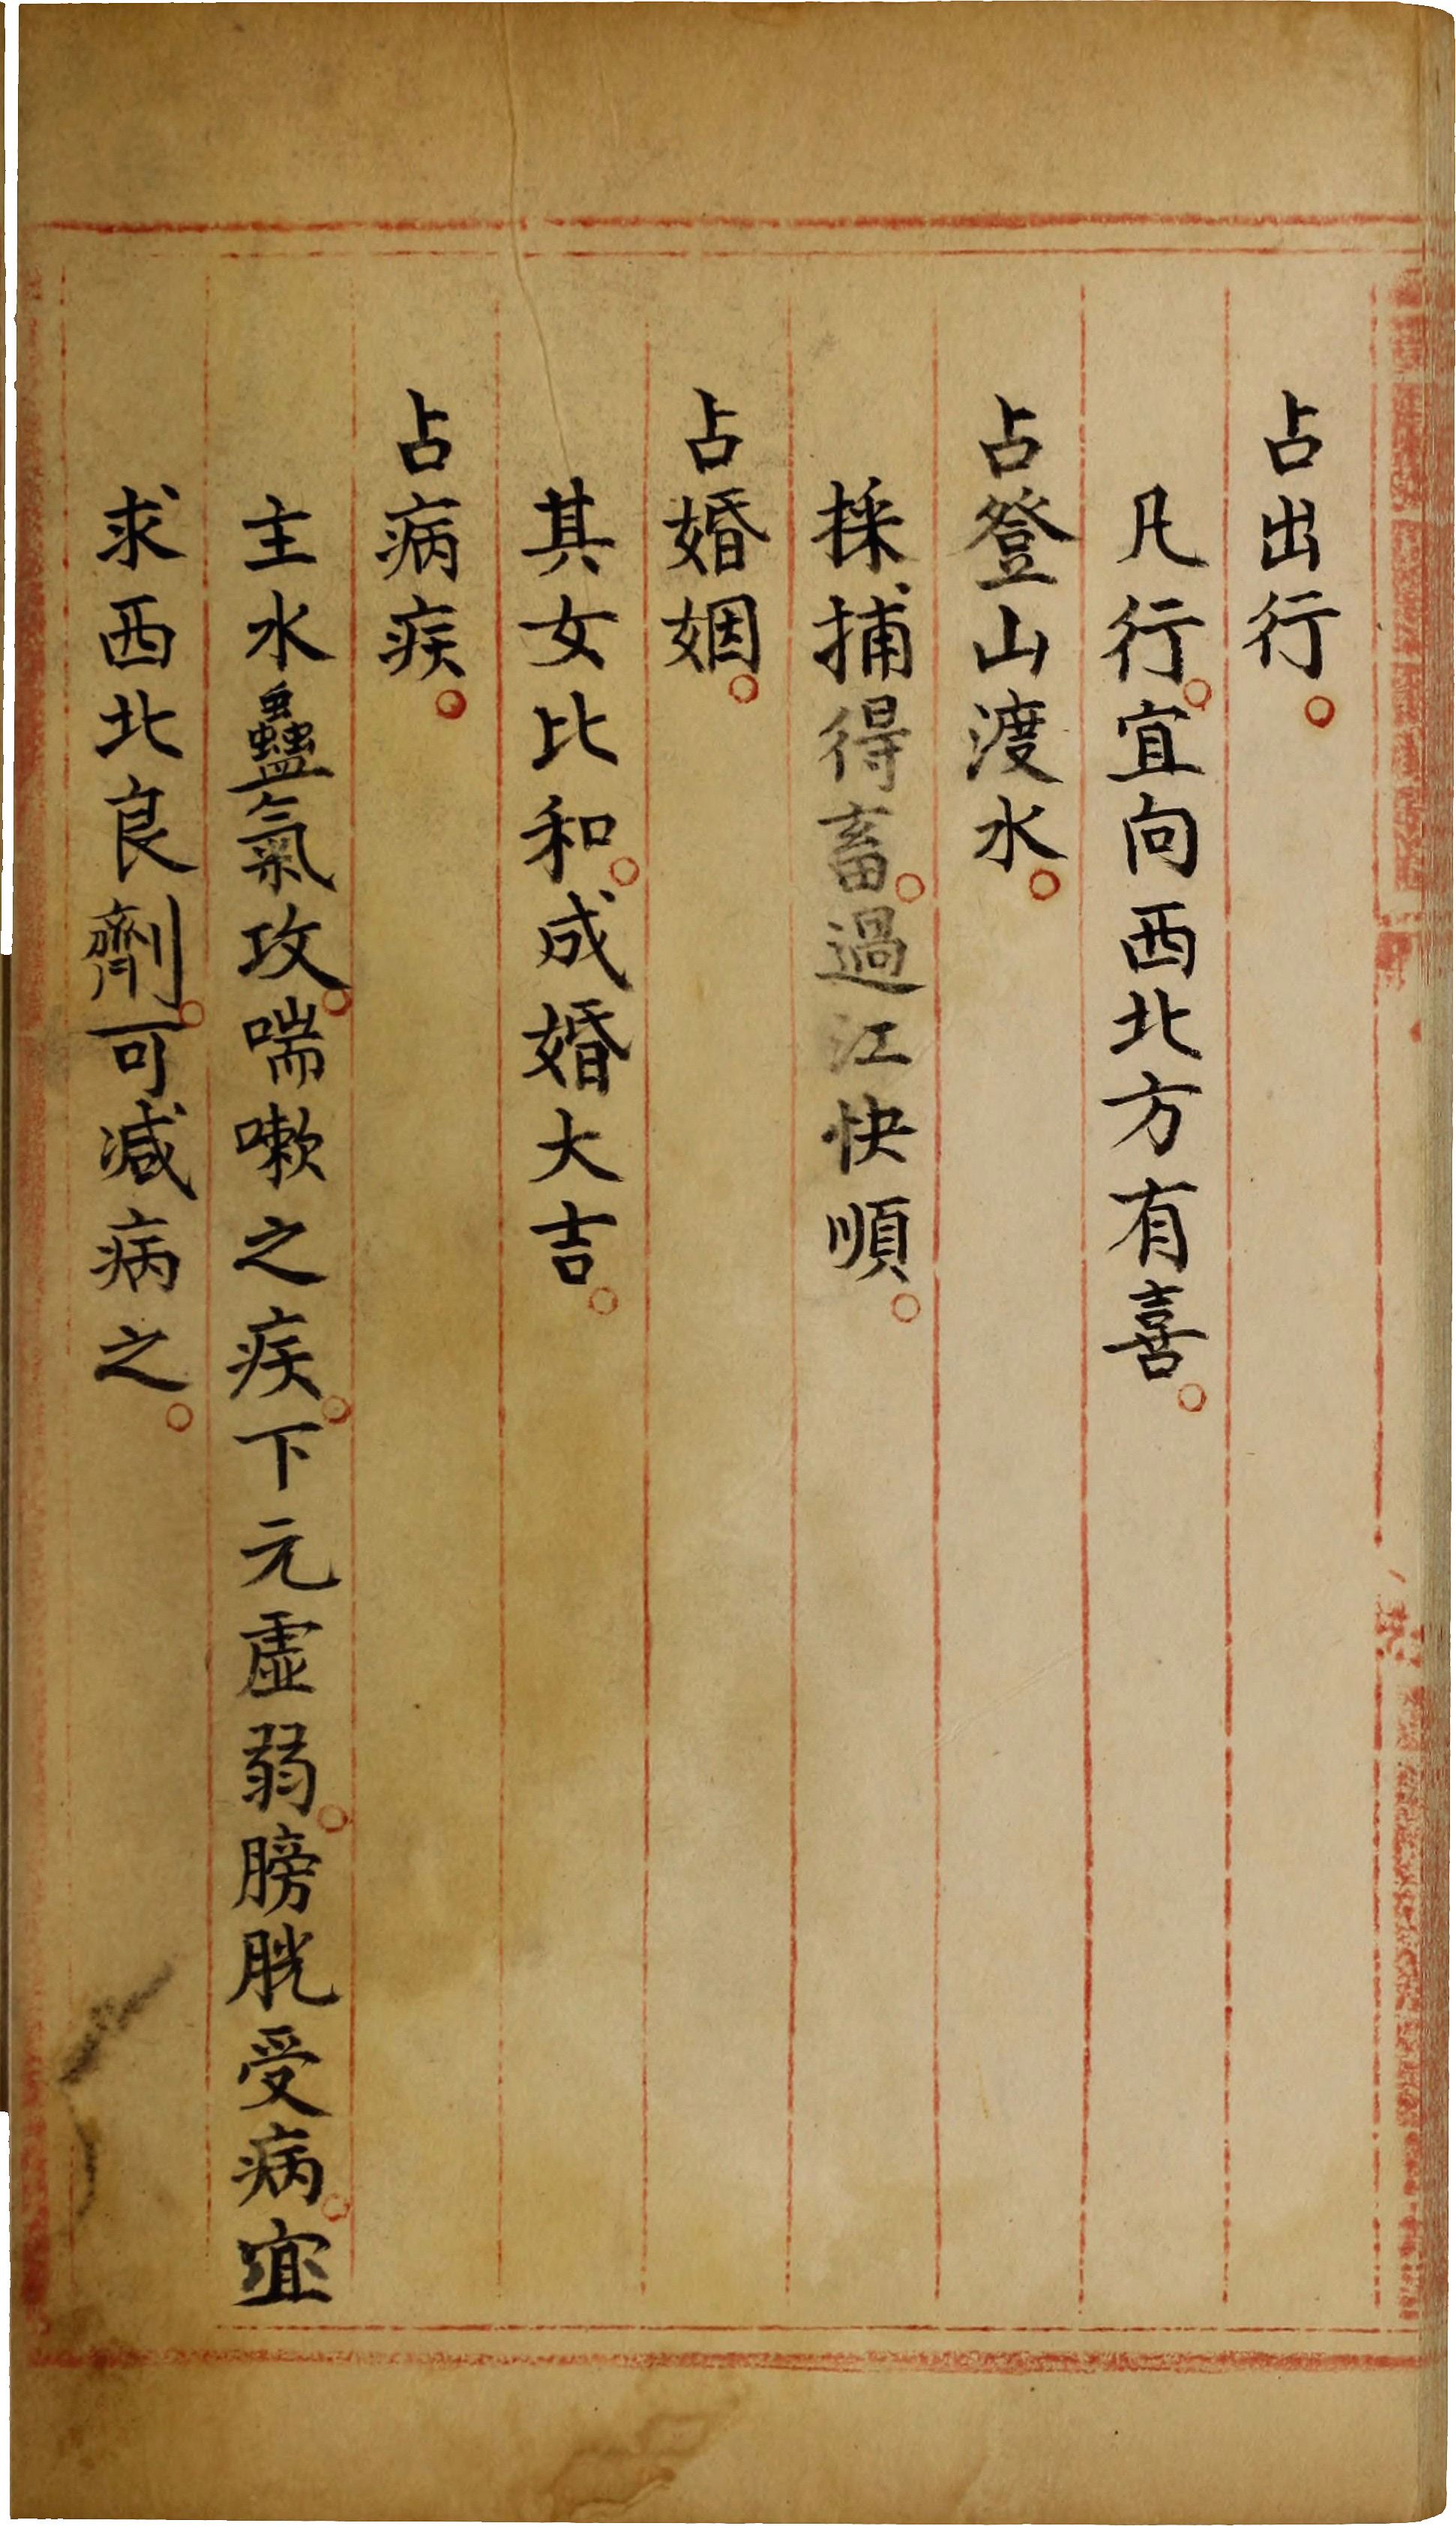 占出行。
凡行。宜向西北方有喜。
占登山渡水。
採捕得畜。過江快順。
占婚姻。
其女比和。成婚大吉。
占病疾。
主水蠱氣攻。喘嗽之疾。下元虛弱。膀胱受病。宜
求西北良劑。可减病之。